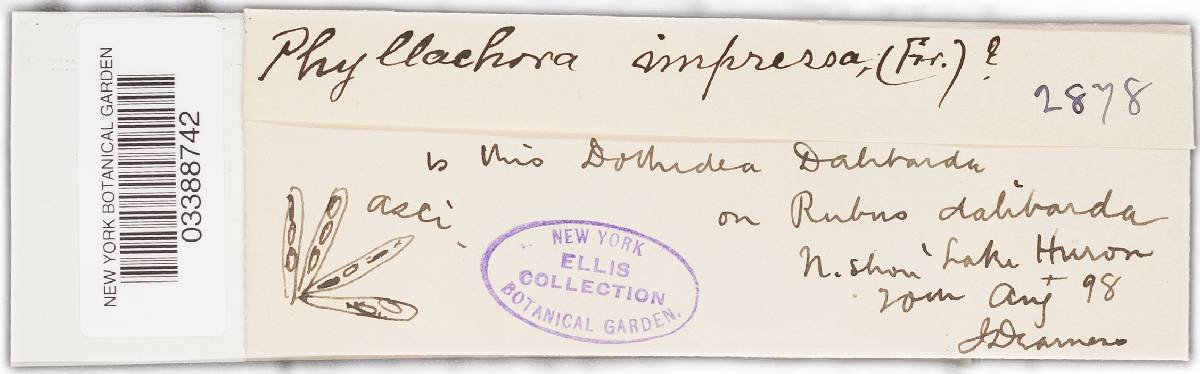 NEW YORK BOTANICAL GARDEN
03388742
Phyllachora impressa, (Fr.) ?
2878
Is this Dothidea Dalibarda
asci
on Rubus dalibarda
N. Shore Lake Huron
20th Augt 98
J Dearness
NEW YORK
ELLIS
COLLECTION
BOTANICAL GARDEN.